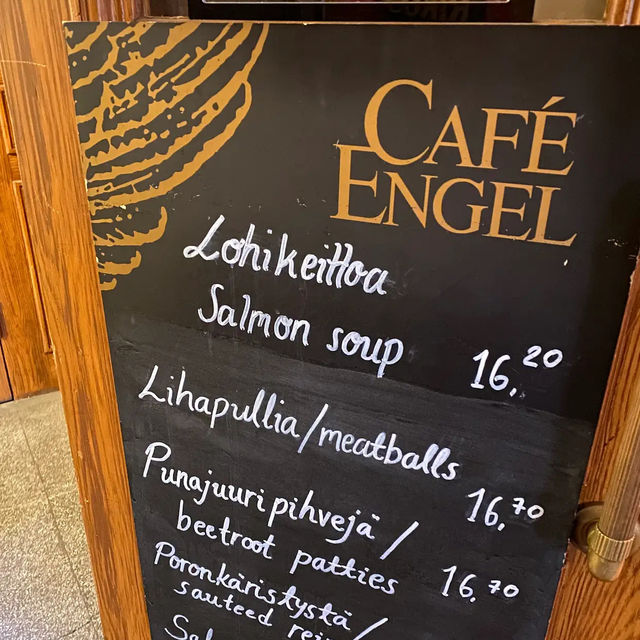 CAFÉ
ENGEL
Lohikeittoa
Salmon soup 16,20
Lihapullia/meatballs
16,70
Punajuuripihvejä/
beetroot patties 16,70
Poronkäristystä/
sauteed